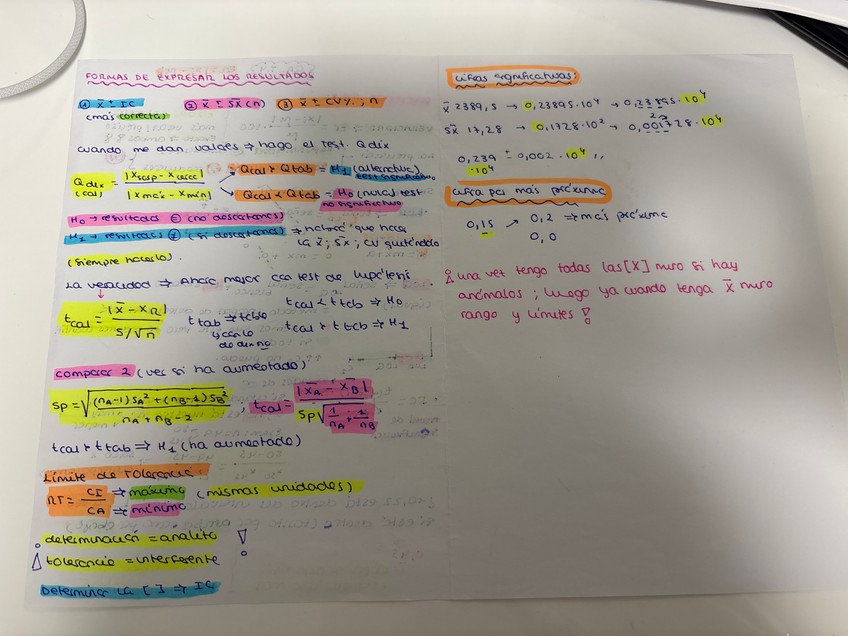 FORMAS DE EXPRESAR LOS RESULTADOS
① x̄ ± IC ② x̄ ± Sx̄ (n) ③ x̄ ± CV% ; n
(más correcta)
cuando me dan valores ⇒ hago el test Q dix
Q dix (cal) = |x sosp - x cerc| / |x máx - x mín|
Qcal > Qtab = H1 (alternativa) test significativo
Qcal < Qtab = H0 (nula) test no significativo
H0 → resultados ⊖ (no descartamos)
H1 → resultados ⊕ (si descartamos) ⇒ que hacer
la x̄ ; sx̄ ; CV quitándolo
(siempre hacerlo)
La veracidad ⇒ Ahora mejor con test de hipótesis
tcal = |x̄ - xR| / s/√n
ttab ⇒ tcdo
tcal < ttab ⇒ H0
tcal > ttab ⇒ H1
comparar 2 (ver si ha aumentado)
Sp = √ (nA-1) SA² + (nB-1) SB² / nA + nB - 2 ; tcal = |x̄A - x̄B| / Sp √ 1/nA + 1/nB
tcal > ttab ⇒ H1 (ha aumentado)
Límite de Tolerancia:
RT = CI / CA ⇒ máximo (mismas unidades)
⇒ mínimo
determinación = analito
tolerancia = interferente
Determinar la [ ] ⇒ IC
cifras significativas:
x̄ 2389,5 → 0,23895·10⁴ → 0,23895·10⁴
sx̄ 17,28 → 0,1728·10² → 0,001728·10⁴
0,239 ± 0,002 ·10⁴ ,,
·10⁴
cifra par más próxima
0,15 ↗ 0,2 ⇒ más próxima
0,0
¡ una vez tengo todas las [X] miro si hay
anómalos ; luego ya cuando tenga x̄ miro
rango y límites !